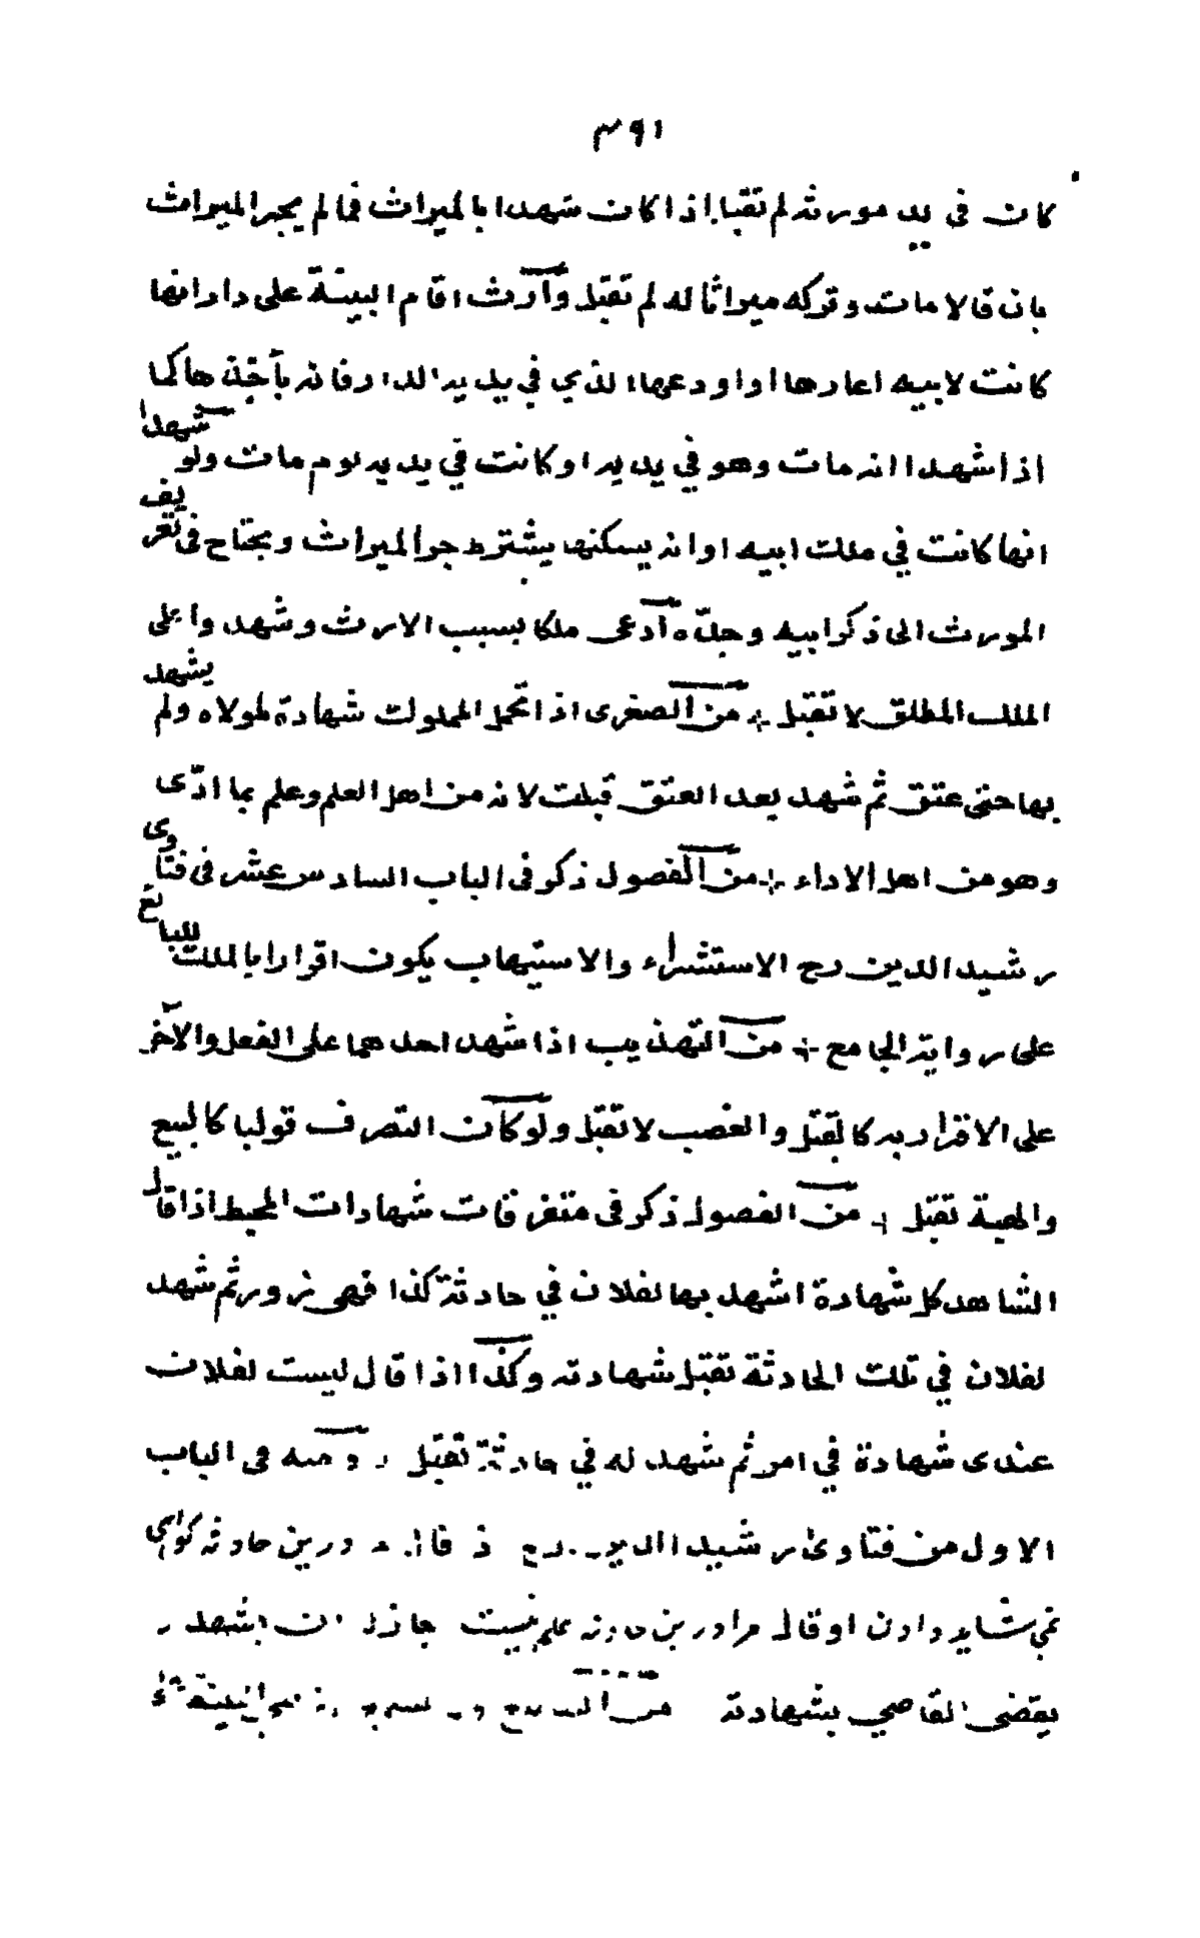 ٣٩١
كان في يد مورثه لم تقبل اذا كان شهدا بالميراث فمالم يجر الميراث
بان قالا مات وتركه ميراثا له لم تقبل وآرث اقام البينة على دار انها
كانت لابيه اعارها او اودعها الذي في يديه الدار فانه يأخذها كما
اذا شهدا انه مات وهو في يديه او كانت في يديه يوم مات ولو شهدا
انها كانت في ملك ابيه او انه يسكنها يشترط جر الميراث ويحتاج في تعريف
المورث الى ذكر ابيه وجدّه ادعى ملكا بسبب الارث وشهدوا على
الملك المطلق لا تقبل من الصغرى اذا تحمل المملوك شهادة لمولاه ولم يشهد
بها حتى عتق ثم شهد بعد العتق قبلت لانه من اهل العلم وعلم بما ادّى
وهو من اهل الاداء من الفصول ذكر في الباب السادس عشر في فتاوى
رشيد الدين رح الاستشراء والاستيهاب يكون اقرارا بالملك للبائع
على رواية الجامع من التهذيب اذا شهد احدهما على الفعل والآخر
على الاقرار به كالقتل والغصب لا تقبل ولو كان التصرف قوليا كالبيع
والهبة تقبل من الفصول ذكر في متفرقات شهادات المحيط اذا قال
الشاهد كل شهادة اشهد بها لفلان في حادثة كذا فهى زور ثم شهد
لفلان في تلك الحادثة تقبل شهادته وكذا اذا قال ليست لفلان
عندى شهادة في امر ثم شهد له في حادثة تقبل ومنه في الباب
الاول من فتاوى رشيد الدين رح قال درين حادثه كواهى
نمي شايد دادن او قال مرا درين حادثه علم نيست جاز ان يشهد
يقضى القاضي بشهادته من